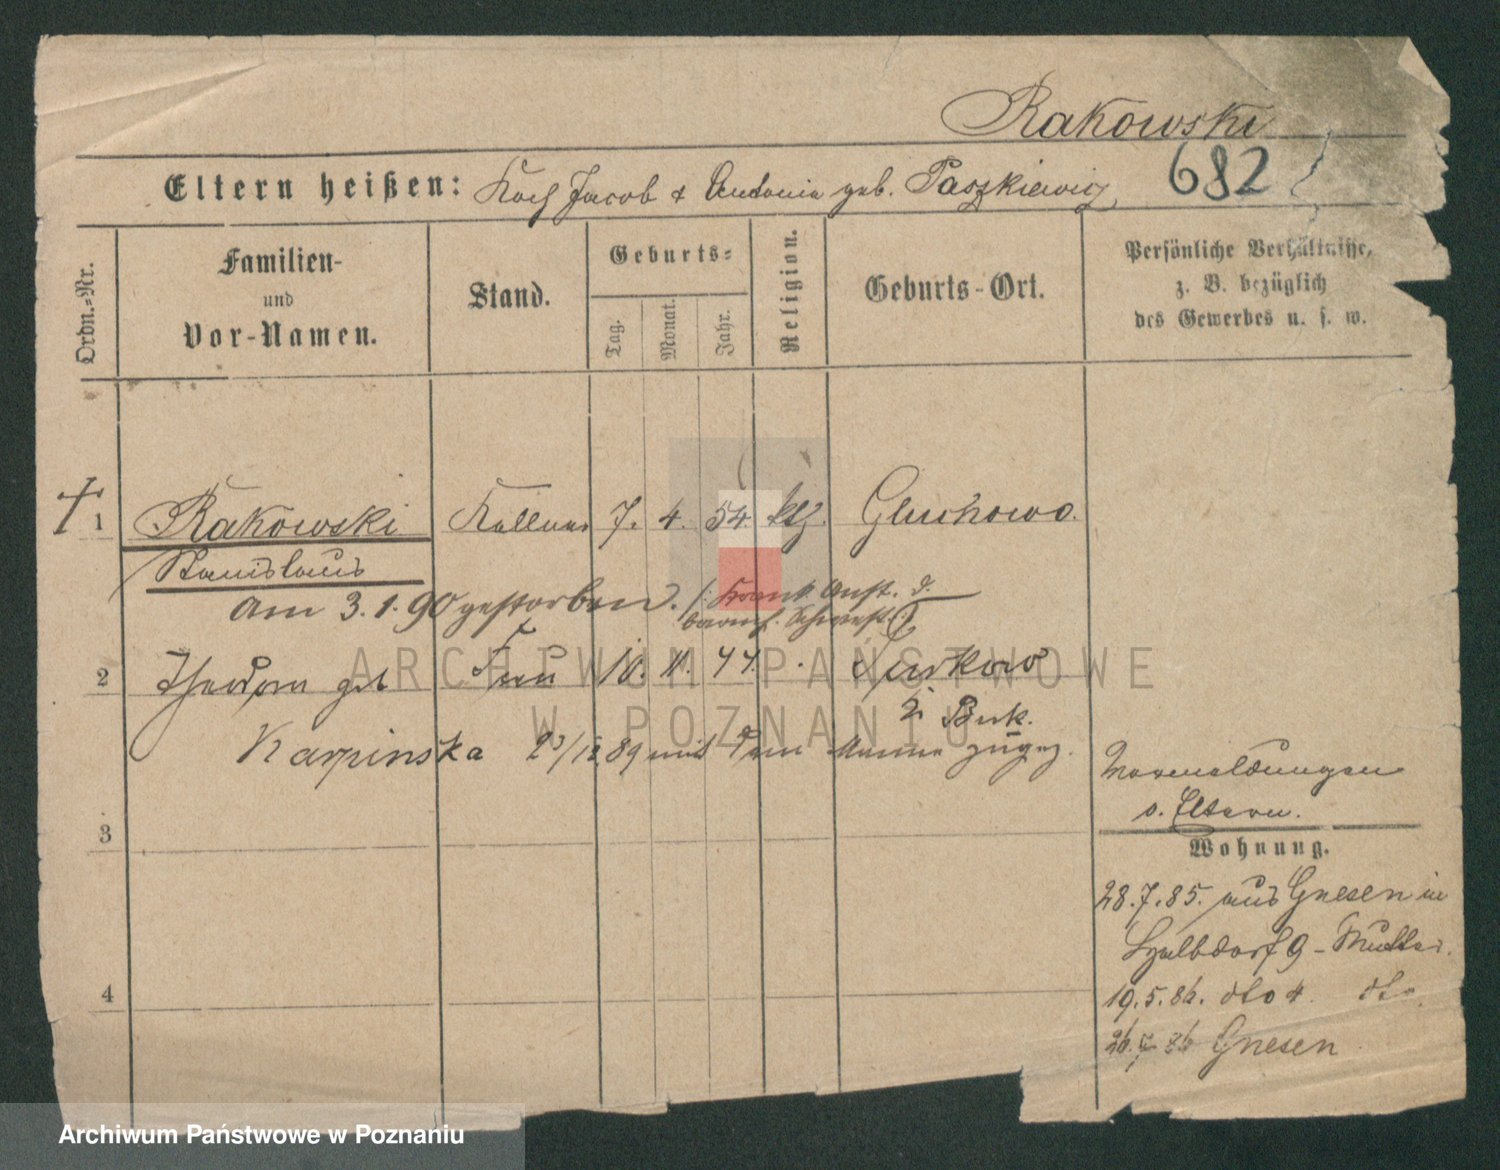 Rakowski
682
Eltern heißen: Koch Jacob & Antonia geb. Paszkiewicz
Ordn.-Nr.
Familien-
und
Vor-Namen.
Stand.
Geburts-
Tag.
Monat.
Jahr.
Religion.
Geburts-Ort.
Persönliche Verhältnisse,
z. B. bezüglich
des Gewerbes u. s. w.
1 Rakowski Kellner 7. 4. 54 ktl. Gluchowo.
Stanislaus
am 3.1.90 gestorben. /: Krank. Anst. d.
barmh. Schwest. :/
2 geb Frau 10. 11. 44. Turkowo
Kr Buk.
Karpinska 23/12 89 mit dem Manne zugez.
Vormeldungen
s. Eltern.
3
Wohnung.
28.7.85. aus Gnesen in
Halbdorf 9 - Mutter.
4
19.5.86. dto 4. dto.
26. 86 Gnesen
ARCHIWUM PAŃSTWOWE
W POZNANIU
Archiwum Państwowe w Poznaniu